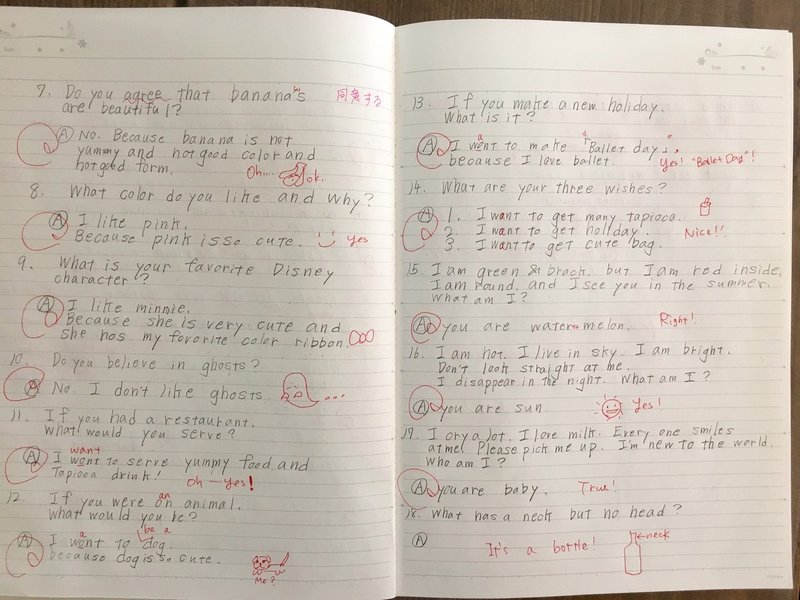 7. Do you agree that banana's
同意する
are beautiful?
Ⓐ No. Because banana is not
yummy and not good color and
not good form.
Oh.... ok.
8. What color do you like and why?
Ⓐ I like pink.
Because pink is so cute. Yes
9. What is your favorite Disney
character?
Ⓐ I like minnie.
Because she is very cute and
she has my favorite color ribbon.
10. Do you believe in ghosts?
Ⓐ No. I don't like ghosts. ...
11. If you had a restaurant.
What would you serve?
want
Ⓐ I wont to serve yummy food and
Tapioca drink! Oh - Yes!
an
12. If you were on animal.
What would you be?
a be a
Ⓐ I wont to dog.
because dog is so cute.
ME?
13. If you make a new holiday.
What is it?
a
Ⓐ I wont to make "Ballet day".
because I love ballet. Yes! "Ballet Day"!
14. What are your three wishes?
Ⓐ 1. I want to get many tapioca.
2. I want to get holiday. Nice!!
3. I want to get cute bag.
15. I am green & brack, but I am red inside.
I am round, and I see you in the summer.
What am I?
Ⓐ you are water melon. Right!
16. I am hot. I live in sky. I am bright.
Don't look straight at me.
I disappear in the night. What am I?
Ⓐ you are sun. Yes!
17. I cry a lot. I love milk. Every one smiles
at me! Please pick me up. I'm new to the world.
Who am I?
Ⓐ you are baby. True!
18. What has a neck but no head?
Ⓐ It's a bottle! ←neck